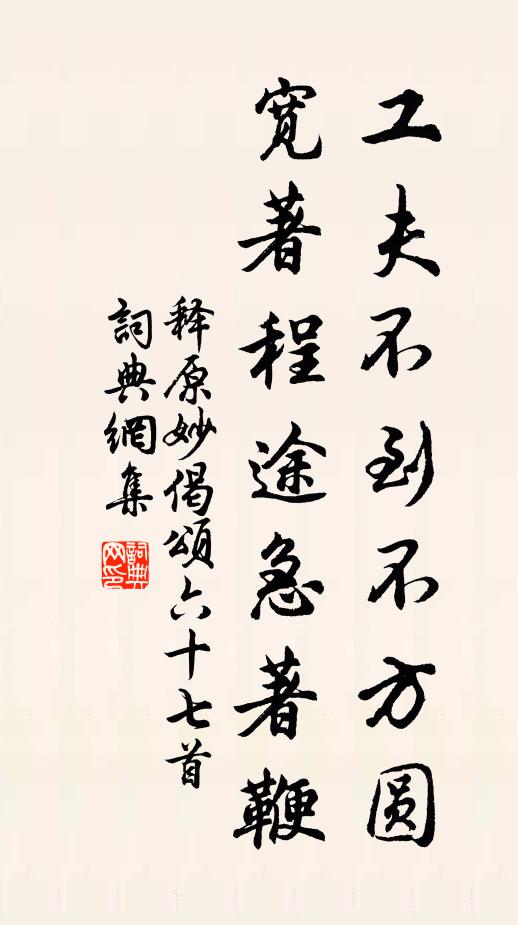 工夫不到不方圆
寬著程途急著鞭
释原妙偈頌六十七首
詞典網集
詞典网印